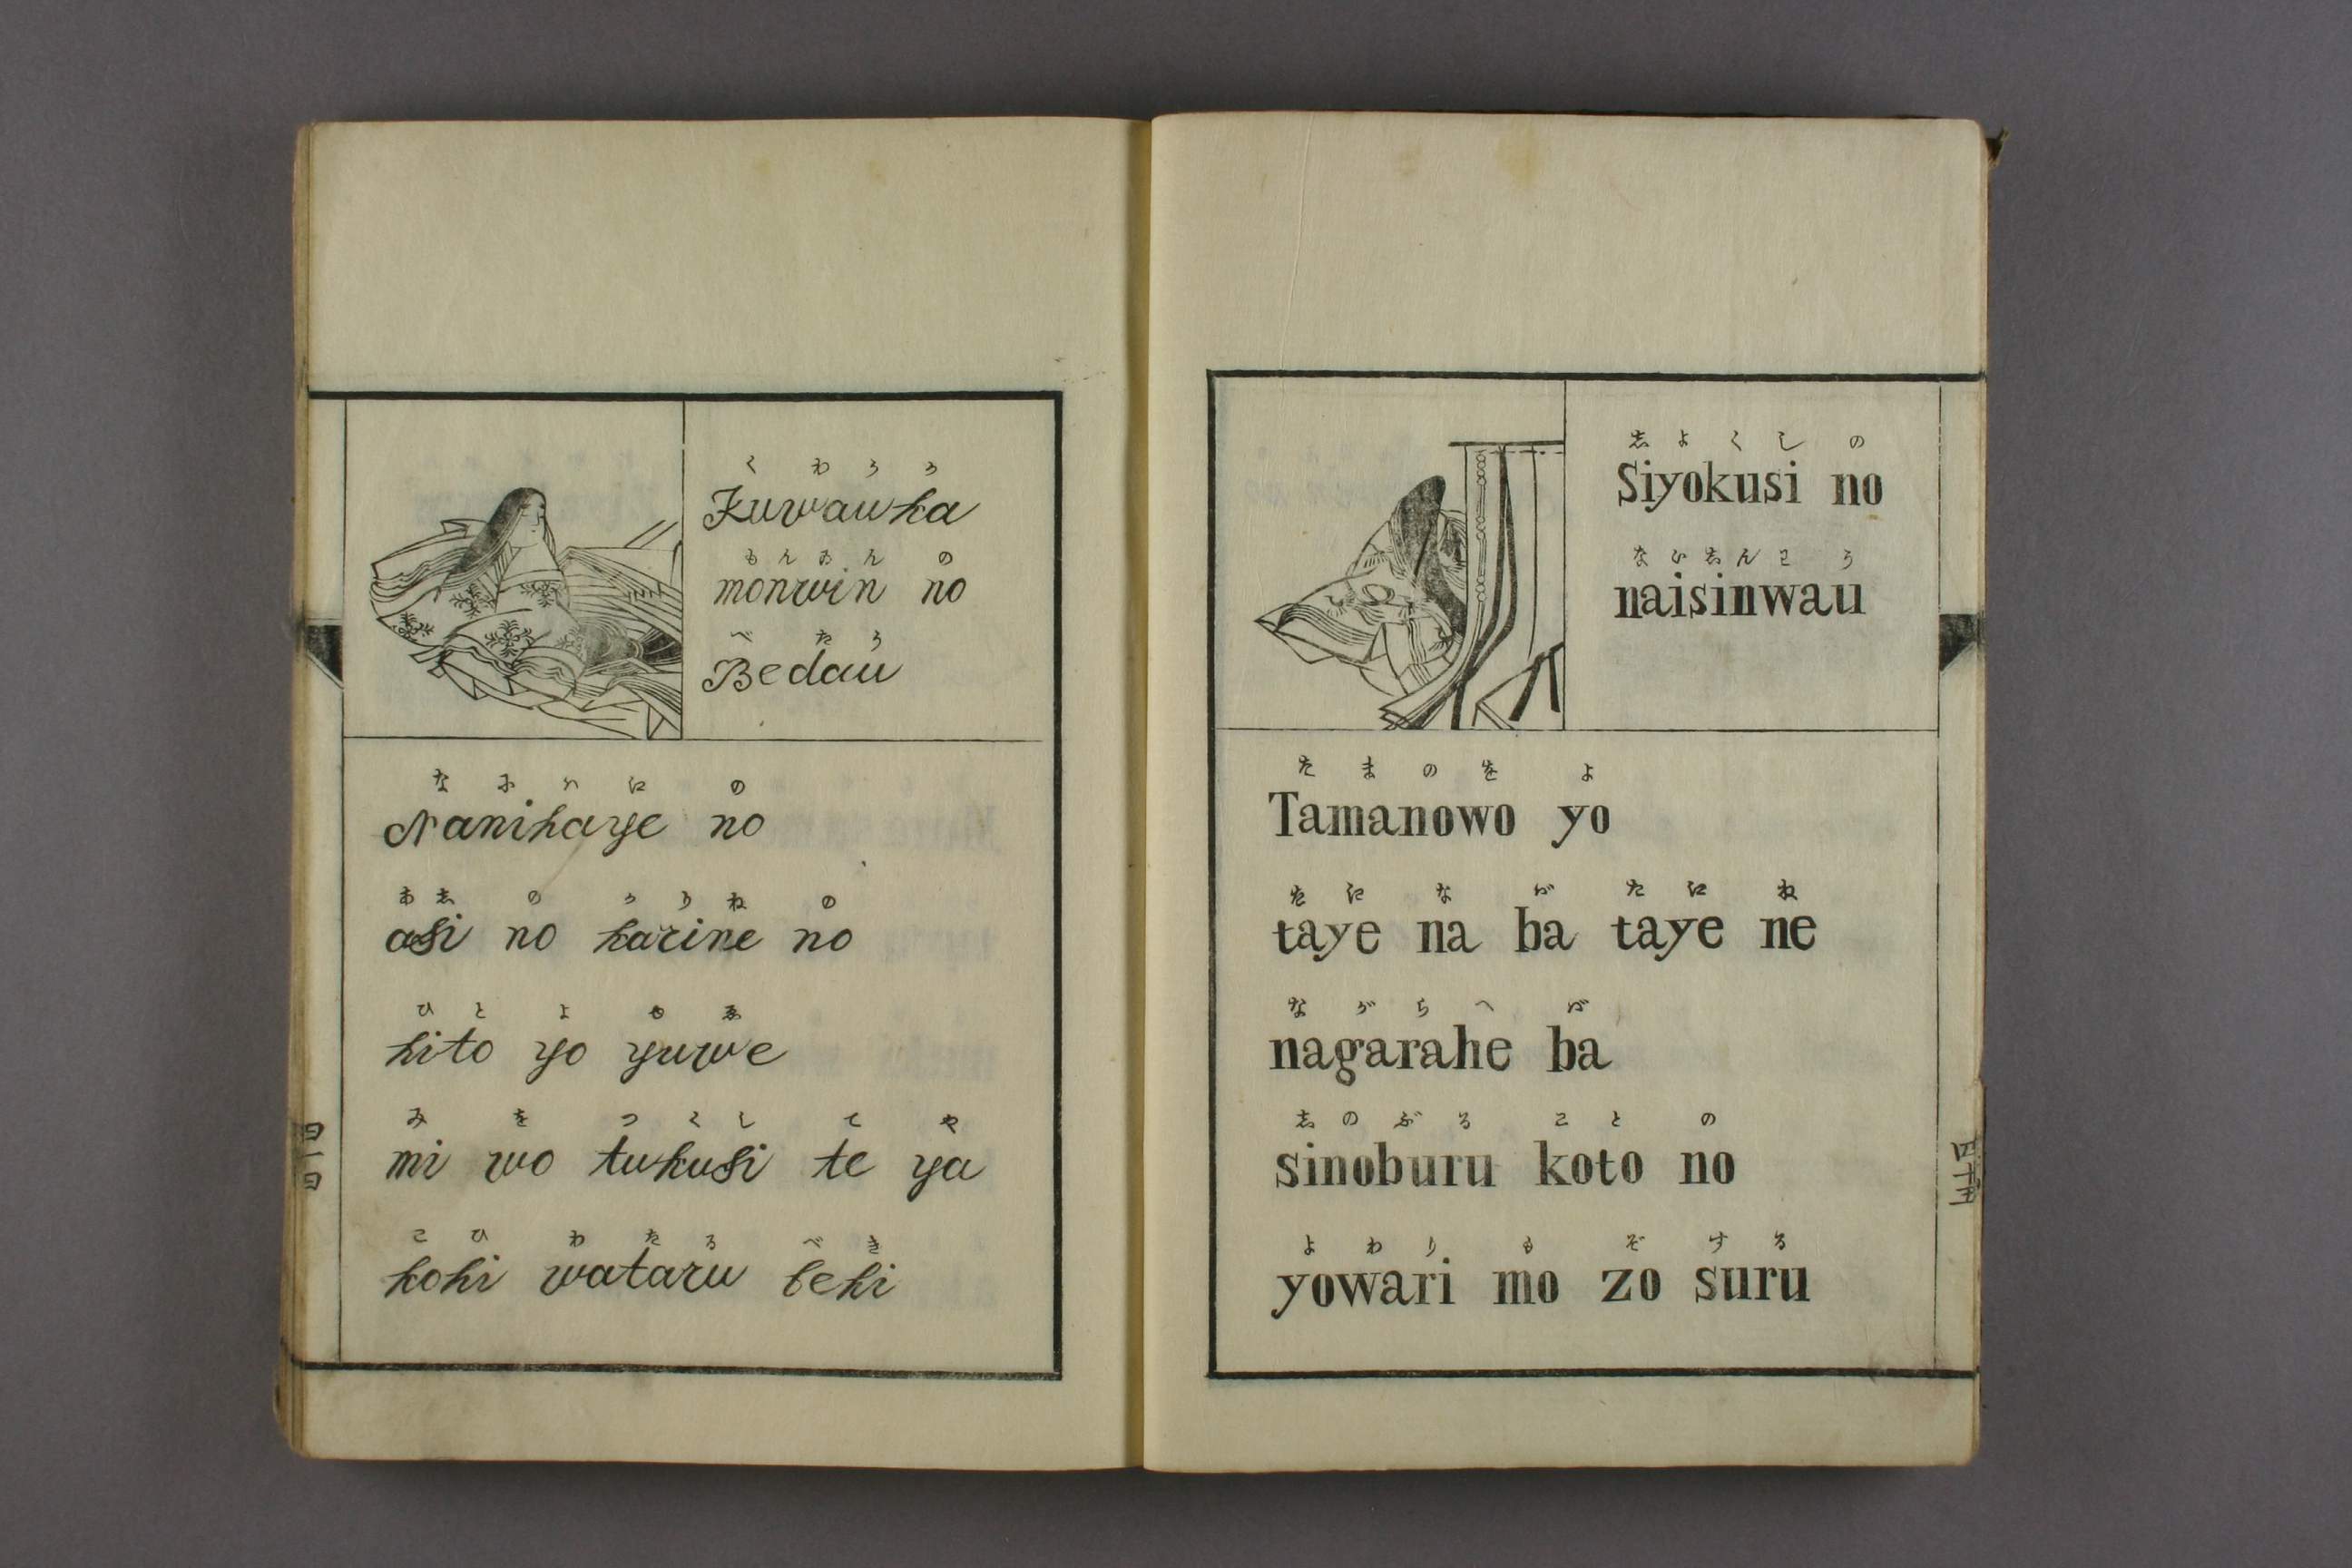 くわうか
Kuwauka
もんゐんの
monwin no
べたう
Bedau
なにハえの
Nanihaye no
あしのかりねの
asi no karine no
ひとよゆゑ
hito yo yuwe
みをつくしてや
mi wo tukusi te ya
こひわたるべき
kohi wataru beki
しよくしの
Siyokusi no
ないしんわう
naisinwau
たまのをよ
Tamanowo yo
たえなばたえね
taye na ba taye ne
ながらへば
nagarahe ba
しのぶることの
sinoburu koto no
よわりもぞする
yowari mo zo suru